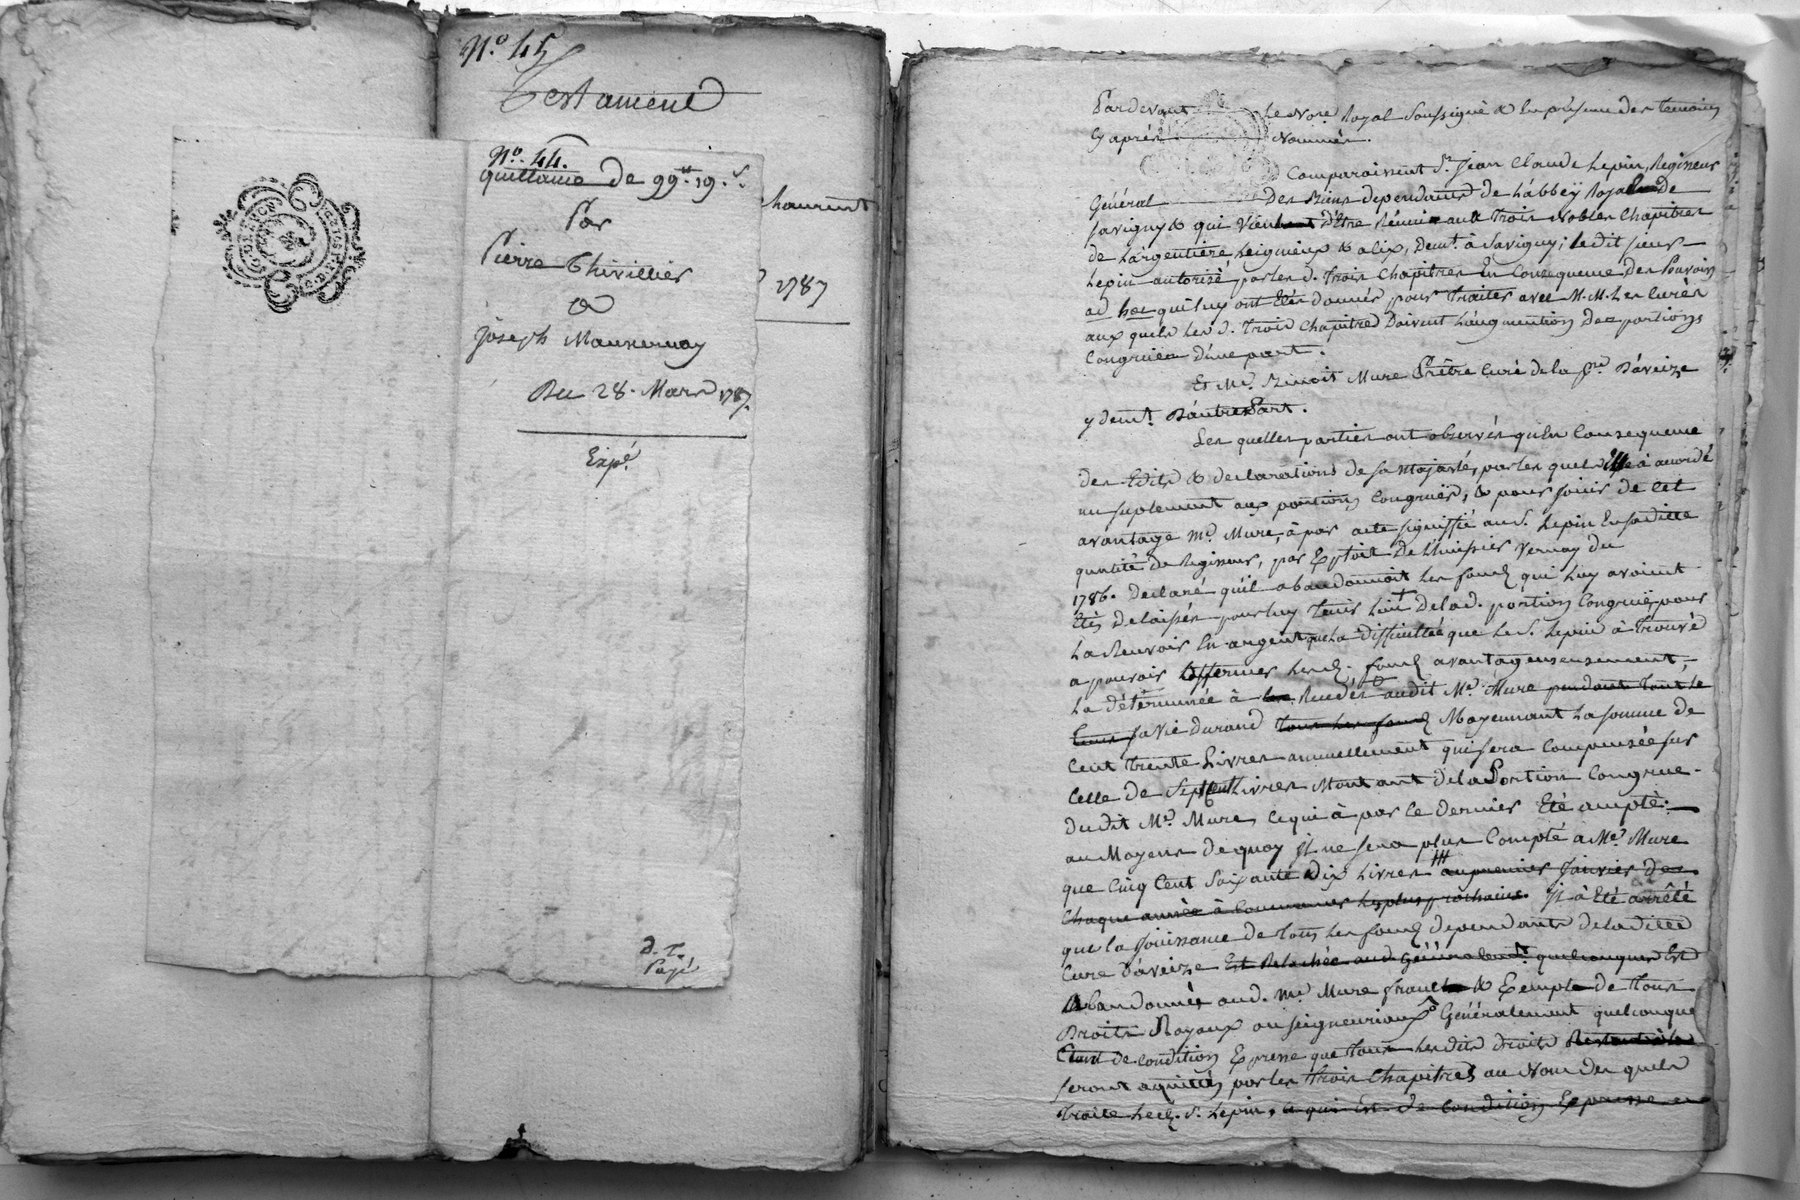 N.o 45
Testament
N.o 44.
Quittance de 99.tt 19.s
Par
Pierre Thivillier
A
Joseph Mauvernay
Du 28. Mars 1787.
Expé.
D. T.
Payé
1787
Pardevant Le No.re Royal Soussigné & En présence des temoins
Cy après Nommés.
Comparoissent S.r Jean Claude Lepin, Regisseur
Général Des Biens dependants de L'abbey Royale de
Savigny & qui Vient d'Etre Réunie aux Trois Nobles Chapitres
de L'argentiere, Leigneux & alix, Dem.t à Savigny; Ledit sieur
Lepin autorisé par les d. Trois Chapitres En Consequence des Pouvoirs
ad hoc qui luy ont Etés donnés pour Traiter avec M.M. Les Curés
aux quels Les d. Trois Chapitres Doivent L'augmention des portions
Congruës D'une part.
Et M.e Benoit Mure Prêtre Curé de la p.sse D'aveize
y dem.t D'autre Part.
Les quelles parties ont observés qu'En Consequence
des Edits & declarations de sa Majesté, par les quels Elle à accordé
un suplement aux portions Congruës, & pour jouir de Cet
avantage M.e Mure, à par acte signiffié au S. Lepin En sa ditte
qualité de Regisseur, par Exploit De L'huissier Vernay du
1786. Declaré qu'il abandonnoit Les fonds qui Luy avoient
Etés Delaissés pour luy Tenir Lieu De la d. portion Congruë, pour
La Recevoir En argent que La difficultée que Le S. Lepin à Trouvé
a pouvoir affermer Lesd. fonds avantageusement,
La déterminée à les Ceder audit M.e Mure pendant tout le
Cours sa Vie durand tous les fonds Moyennant La somme de
Cent Trente Livres annuellement qui sera Compensée sur
Celle de Sept Cent Livres Montant de la Portion Congrue
du dit M.e Mure, Ce qui à par Ce Dernier Eté accepté.
au Moyens de quoy Il ne sera plus Compté à M.e Mure
que Cinq Cent Soixante Dix Livres au premier Janvier de
Chaque année à Commencer Le plus prochain. Il à Eté arrêté
que la Jouissance de Tous Les fonds dependants de la ditte
Cure D'aveize Est Relachée aud. Généralem.t quelconques Est
Abandonnée aud. M.e Mure franche & Exempte de Tous
Droits Royaux ou seigneuriaux Généralement quelconque
Etant de Condition Expresse que Tous Les dits droits
seront aquittés par les Trois Chapitres au Nom des quels
Traite Led. S. Lepin, Ce qui Est de Condition Expresse